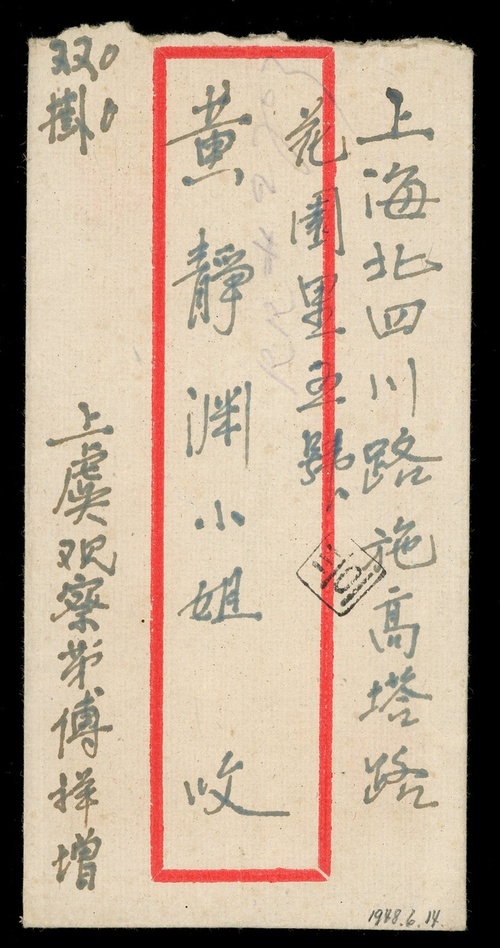 上海北四川路施高塔路
花園里五號
黄靜渊小姐 收
双掛
上虞观察第傅祥增
1948.6.14.